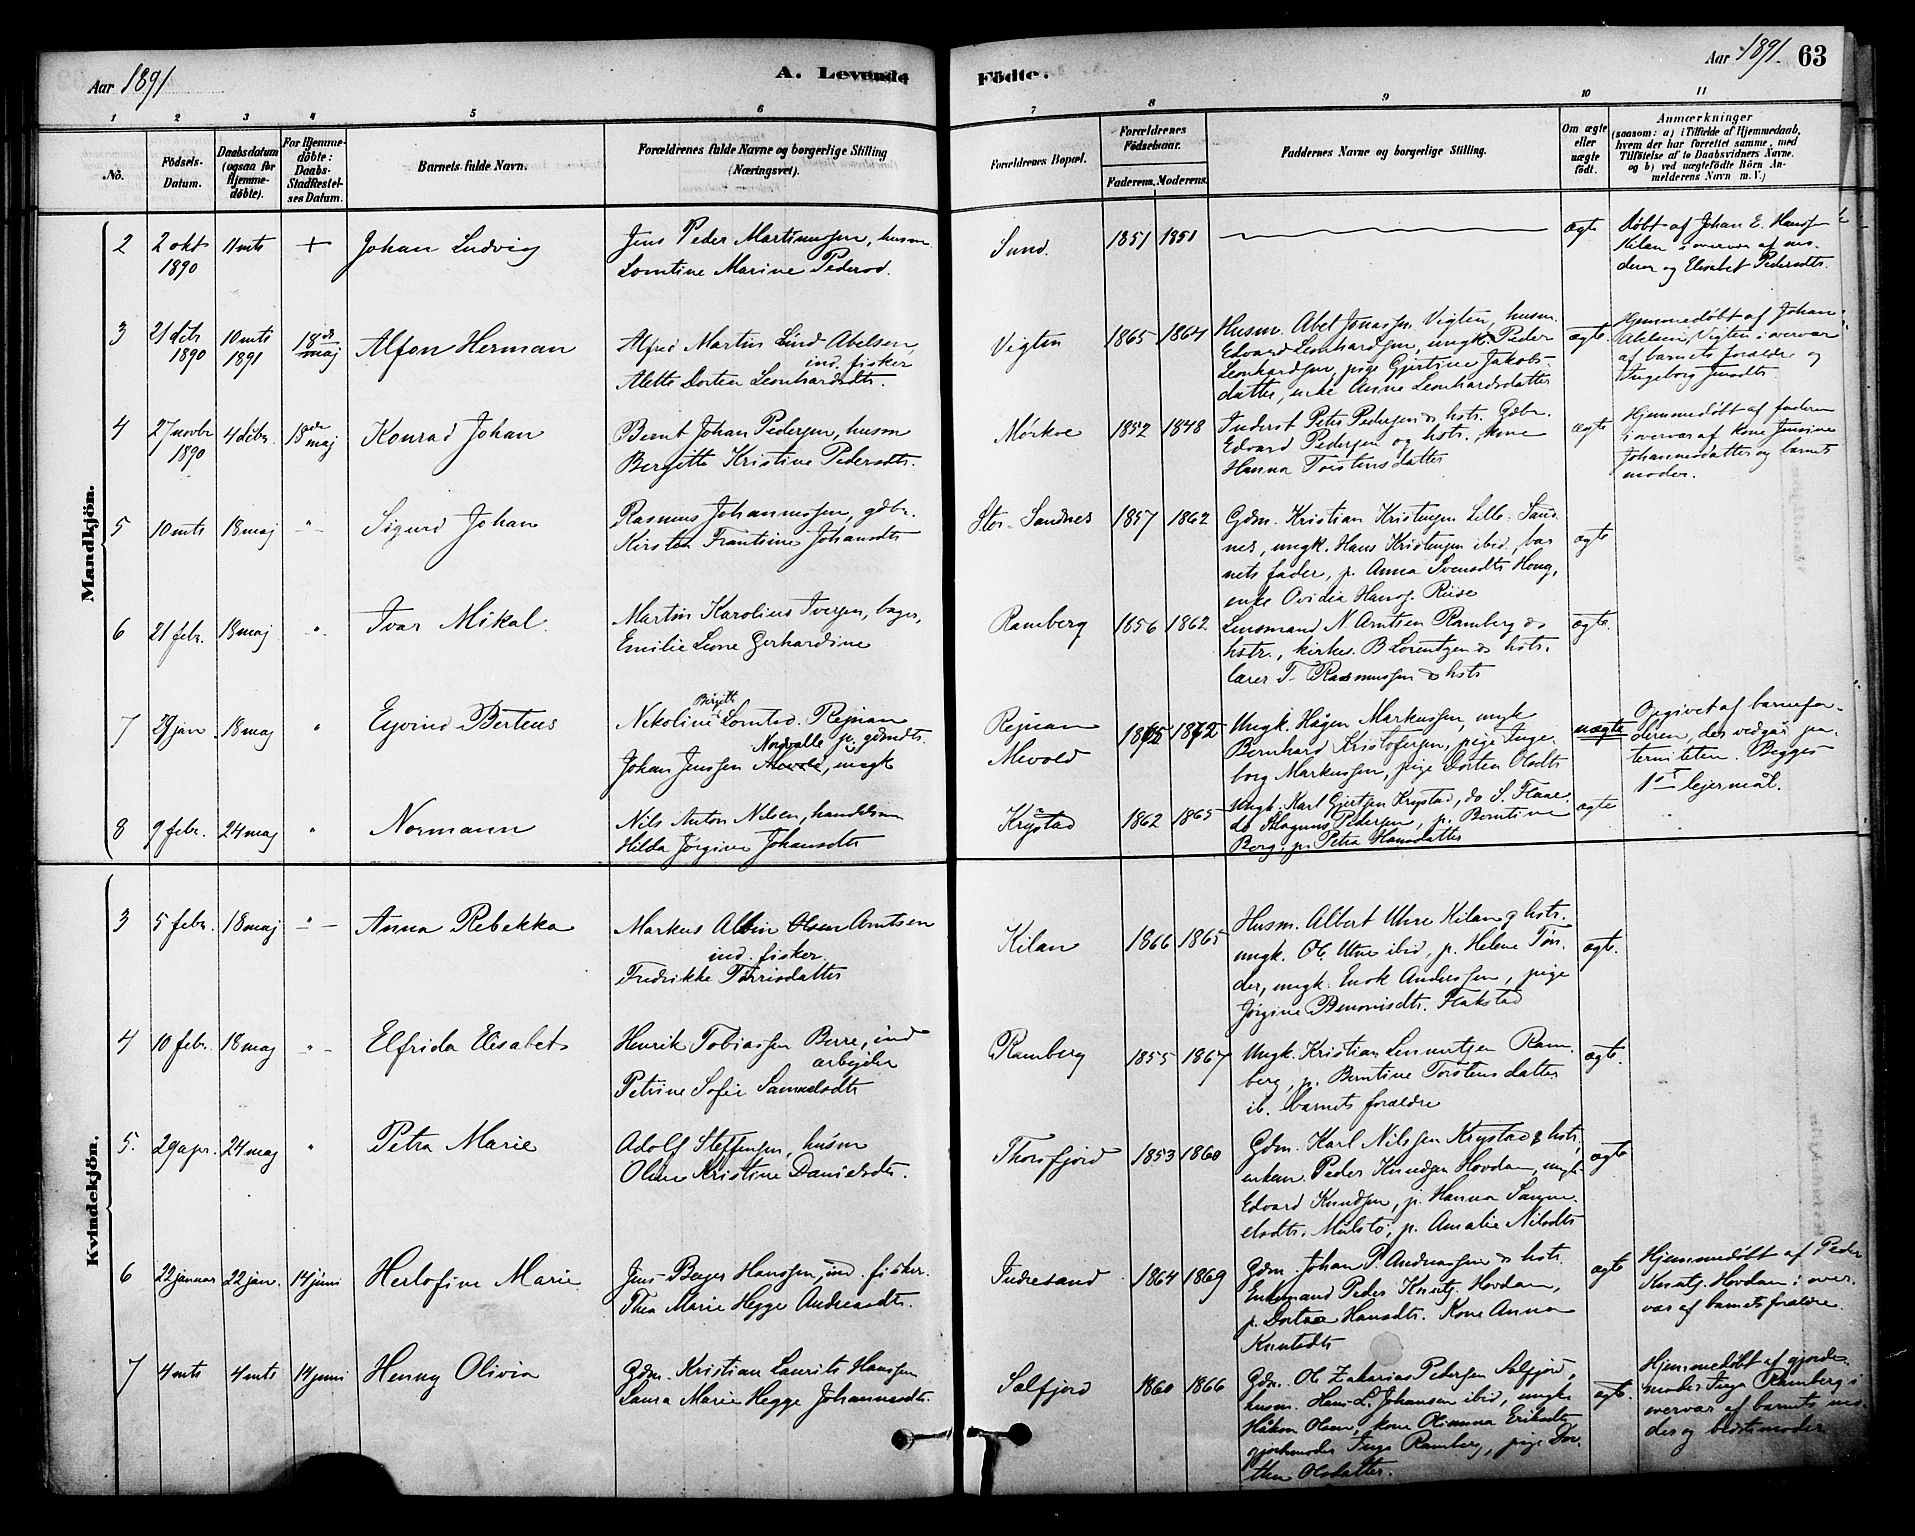 Aar 1891
A. Levende
Födte.
Aar 1891. 63
1 2 3 4 5 6 7 8 9 10 11
No.
Födsels-
Datum.
Daabsdatum
(ogsaa for
Hjemme-
döbte).
For Hjemme-
döbte:
Daabs-
Stadfæstel-
ses Datum.
Barnets fulde Navn.
Forældrenes fulde Navne og borgerlige Stilling
(Næringsvei).
Forældrenes Bopæl.
Forældrenes
Födselsaar.
Faderens. Moderens.
Faddernes Navne og borgerlige Stilling.
Om ægte
eller
uægte
födt.
Anmærkninger
(saasom: a) i Tilfælde af Hjemmedaab,
hvem der har forrettet samme, med
Tilföielse af to Daabsvidners Navne,
og b) ved uægtefödte Börn An-
melderens Navn m. V.)
Mandkjön.
2 2 okt 1890 11 mts + Johan Ludvig
Jens Peder Martinussen, husm
Lorntine Marine Pedersd.
Sund. 1851 1851
ægte
Døbt af Johan E. Hansf
Kilan i overvær af mo-
deren og Elisabet Pedersdts.
3 21 dcb 1890 10 mts 1891 18de maj Alfon Herman
Alfred Martin Lind Abelsen,
ind. fisker
Alette Dorten Leonhardsdts.
Vigten 1865 1864
Husm. Abel Jonassen Vigten, husm.
Edvard Leonhardsen, ungk. Peder
Leonhardsen, pige Gjertine Jakobs-
datter, enke Anne Leonhardsdatter
ægte
Hjemmedøbt af Johan
Abelsen, Vigten i overvær
af barnets forældre og
Ingeborg Jensdts
4 27 novbr 1890 4 decbr. 18de maj Konrad Johan
Bernt Johan Pedersen, husm
Bergitte Kristine Pedersdts.
Mørkve 1852 1848
Inderst Peter Pedersen & hstr. Gdbr.
Edvard Pedersen og hstr. kone
Hanna Torstensdatter
ægte
Hjemmedøbt af faderen
i overvær af kone Jensine
Johannesdatter og barnets
moder.
5 10 mts 18 maj " Sigurd Johan
Rasmus Johannessen, gdbr.
Kirsten Frantsine Johansdts
Stor-Sandnes 1857 1862
Gdm. Kristian Kristensen Lille-Sand
nes, ungk. Hans Kristensen ibid, bar
nets fader, p. Anna Svensdts Houg,
enke Ovidia Hansf. Riise
ægte
6 21 febr. 18 maj " Ivar Mikal.
Martin Karolius Iversen, bager,
Emilie Leone Gerhardine
Ramberg 1856 1862
Lensmand N. Arntsen Ramberg &
hstr., kirkes. B Lorentzen & hstr.
lærer T. Rasmussen & hstr
ægte.
7 29 jan 18 maj " Ejvind Berteus
Birgitt
Nikoline Lorntsd. Rejnan
Nordvalle p. gdmdts.
Johan Jenssen Mevold, ungk
Rejnan
Mevold
1872
Ungk. Hågen Markussen, ungk
Bernhard Kristofersen, pige Inge
borg Markussen, pige Dorten Olsdts
uægte
Opgivet af barnefa-
deren, der vedgår pa-
terniteten. Begges
1ste lejermål.
8 9 febr. 24 maj " Normann
Nils Anton Nilsen, handelsm
Hilda Jørgine Johansdts
Krystad 1862 1865
Ungk. Karl Gjertsen Krystad, do S. Flaae
do Magnus Pedersen, p. Berntine
Borg, p. Petra Hansdatter
ægte
Kvindekjön.
3 5 febr. 18 maj " Anna Rebekka
Markus Albin Olsen Arntsen
ind. fisker
Fredrikke Tørrisdatter
Kilan 1866 1865
Husm. Albert Uhre Kilan & hstr.
ungk. Ol. Uhre ibid, p. Helene Tøn-
der, ungk. Enok Anderssen, pige
Jørgine Benonisdts. Flakstad
ægte.
4 10 febr. 18 maj " Elfrida Elisabet
Henrik Tobiassen Berre, ind
arbejder
Petrine Sofie Samuelsdts
Ramberg 1855 1867
Ungk. Kristian Lennertsen Ram-
berg, p. Berntine Torstensdatter
ib. barnets forældre
ægte.
5. 29 apr. 24 maj " Petra Marie
Adolf Steffensen, husm
Oline Kristine Danielsdts.
Thorsfjord 1853 1860
Gdm. Karl Nilssen Krystad & hstr,
enkem. Peder Knudsen Hovdan, ungk
Edvard Knudsen, p. Hanna Samu-
elsdts. Mulstø, p. Amalie Nilsdts
ægte
6 22 januar 22 jan. 14 juni Herlofine Marie
Jens Berger Hanssen, ind. fisker.
Thea Marie Hegge Andreasdts.
Indresand 1864 1869
Gdm. Johan P. Andreassen & hstr
Enkemand Peder Knutsf. Hovdan,
p. Dortea Hansdts. Kone Anna
Knutsdts
ægte
Hjemmedøbt af Peder
Knutsf. Hovdan i over-
vær af barnets forældre.
7 4 mts 4 mts 14 juni Henny Olivia
Gdm. Kristian Laurits Hanssen
Laura Marie Hegge Johannesdts.
Selfjord 1860 1866
Gdm. Ol Zakarias Pedersen Selfjord,
husm. Hans L. Johansen ibid, ungk
Håkon Olsen, kone Olianna Eriksdts
gjordemoder Inga Ramberg, pige Dor-
then Olsdatter.
ægte.
Hjemmedøbt af gjorde-
moder Inga Ramberg i
overvær af barnets mo-
der og bedstemoder